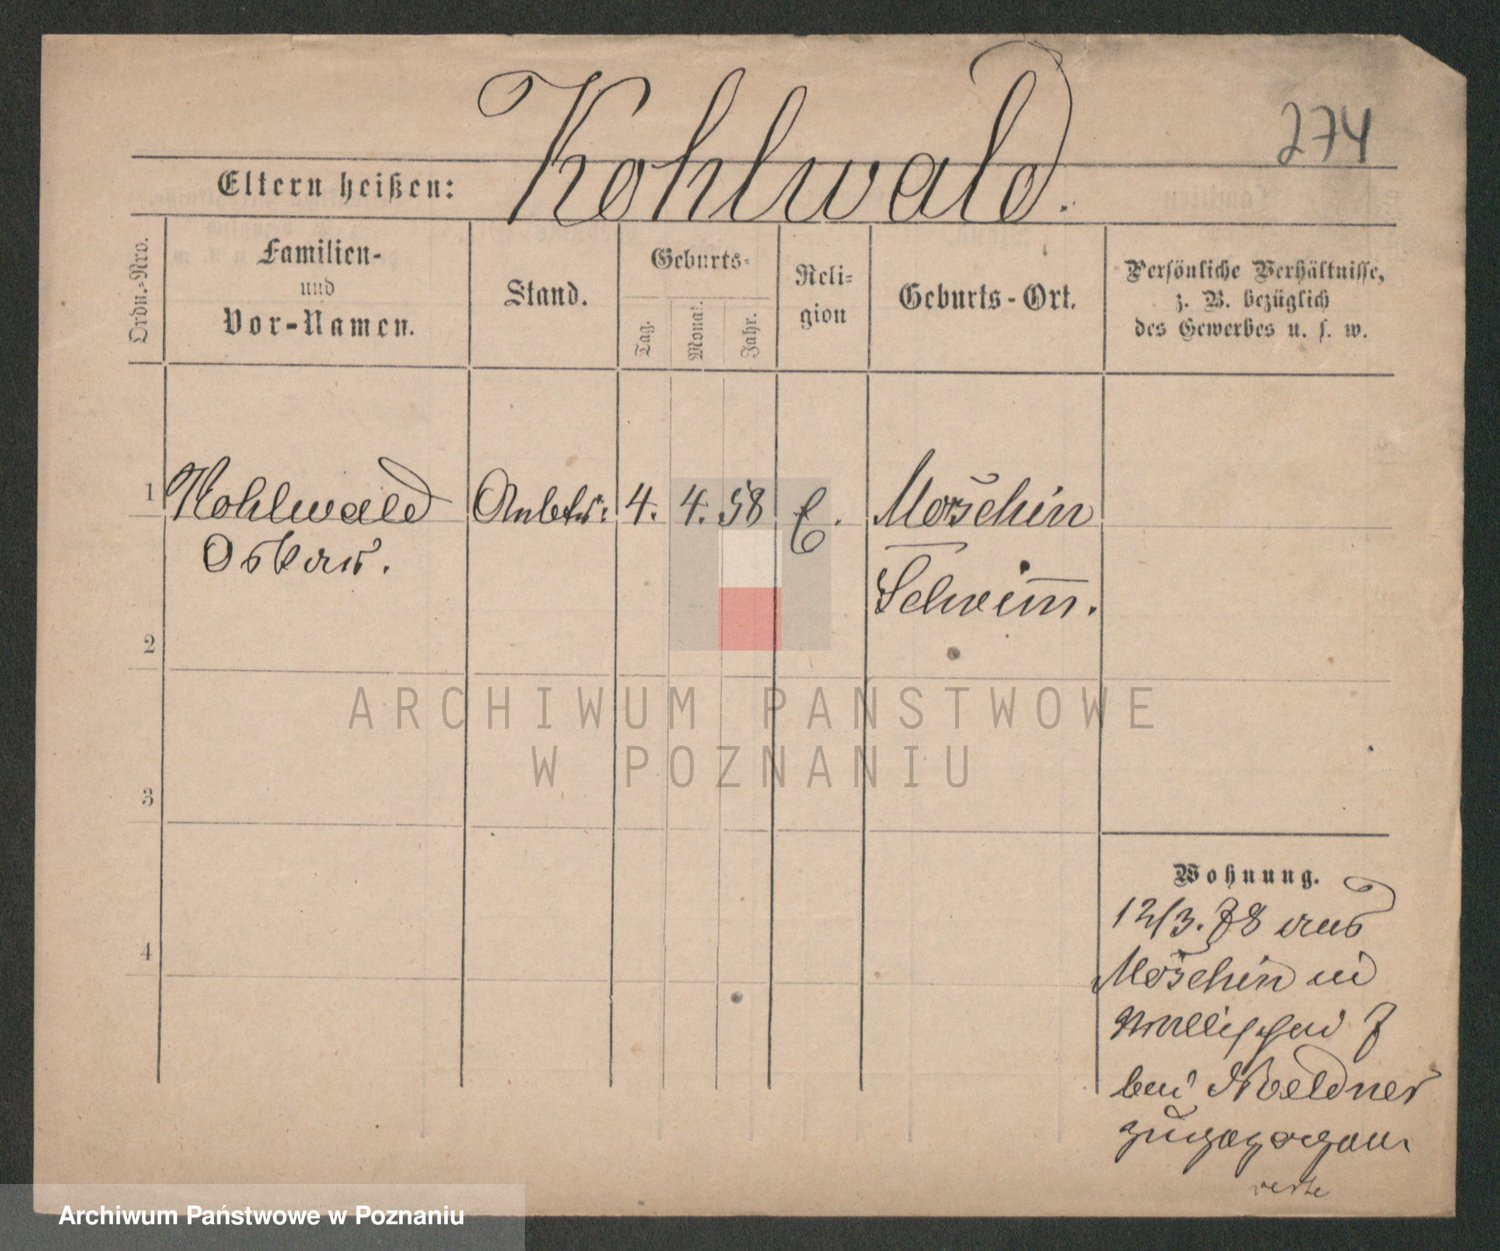 Kohlwald.
274
Eltern heißen:
Ordn.-Nro.
Familien-
und
Vor-Namen.
Stand.
Geburts-
Tag.
Monat.
Jahr.
Reli-
gion
Geburts-Ort.
Persönliche Verhältnisse,
z. B. bezüglich
des Gewerbes u. s. w.
1 Kohlwald 4. 4. 58 E. Moschin
Oskar. Schrim̅.
2
3
4
Wohnung.
12/3. 78 aus
Moschin in
Wallischei 7
bei Noeldner
zugezogen
ARCHIWUM PANSTWOWE
W POZNANIU
Archiwum Państwowe w Poznaniu